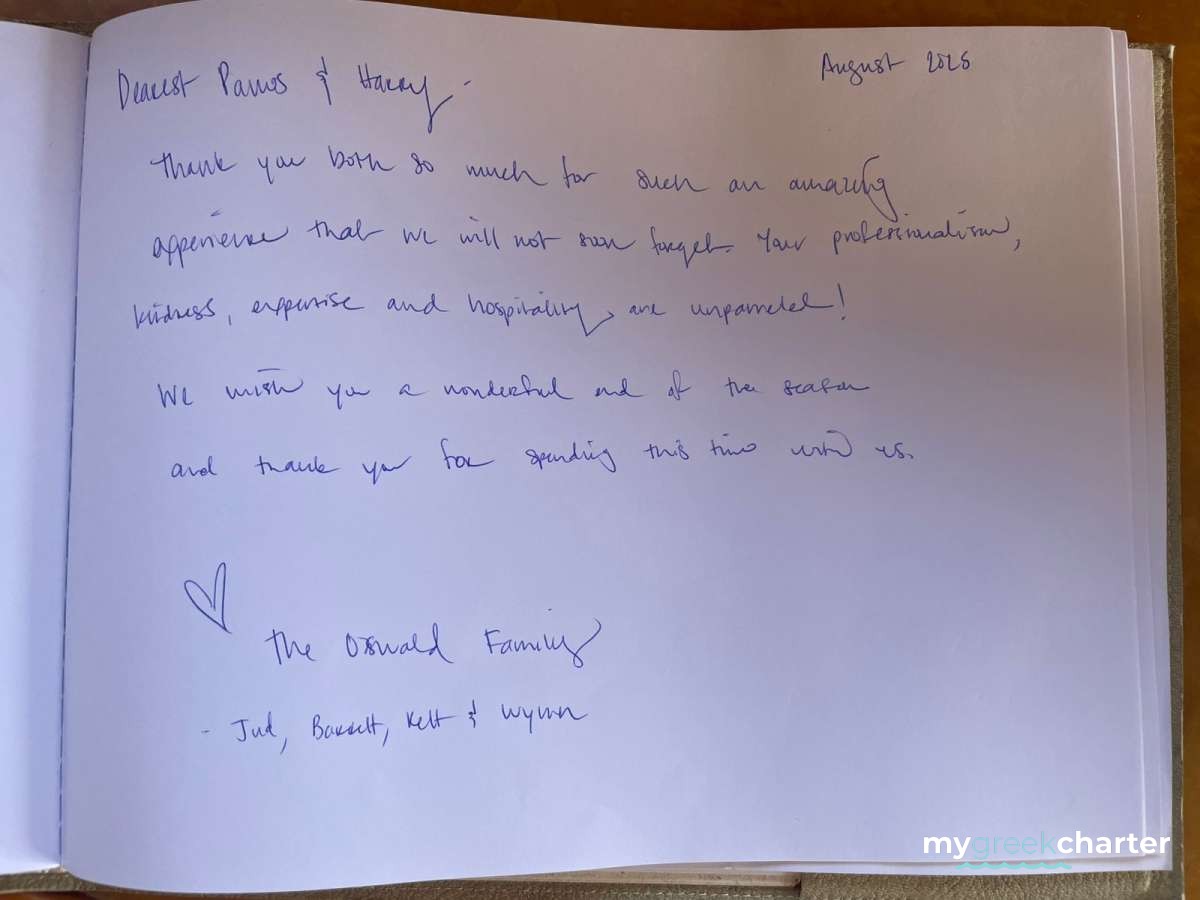 August 2025
Dearest Panos & Harry -
Thank you both so much for such an amazing
experience that we will not soon forget. Your professionalism,
kindness, expertise and hospitality are unparraleled!
We wish you a wonderful end of the season
and thank you for spending this time with us.
The Oswald Family
- Jud, Barrett, Kett & Wynn
mygreekcharter